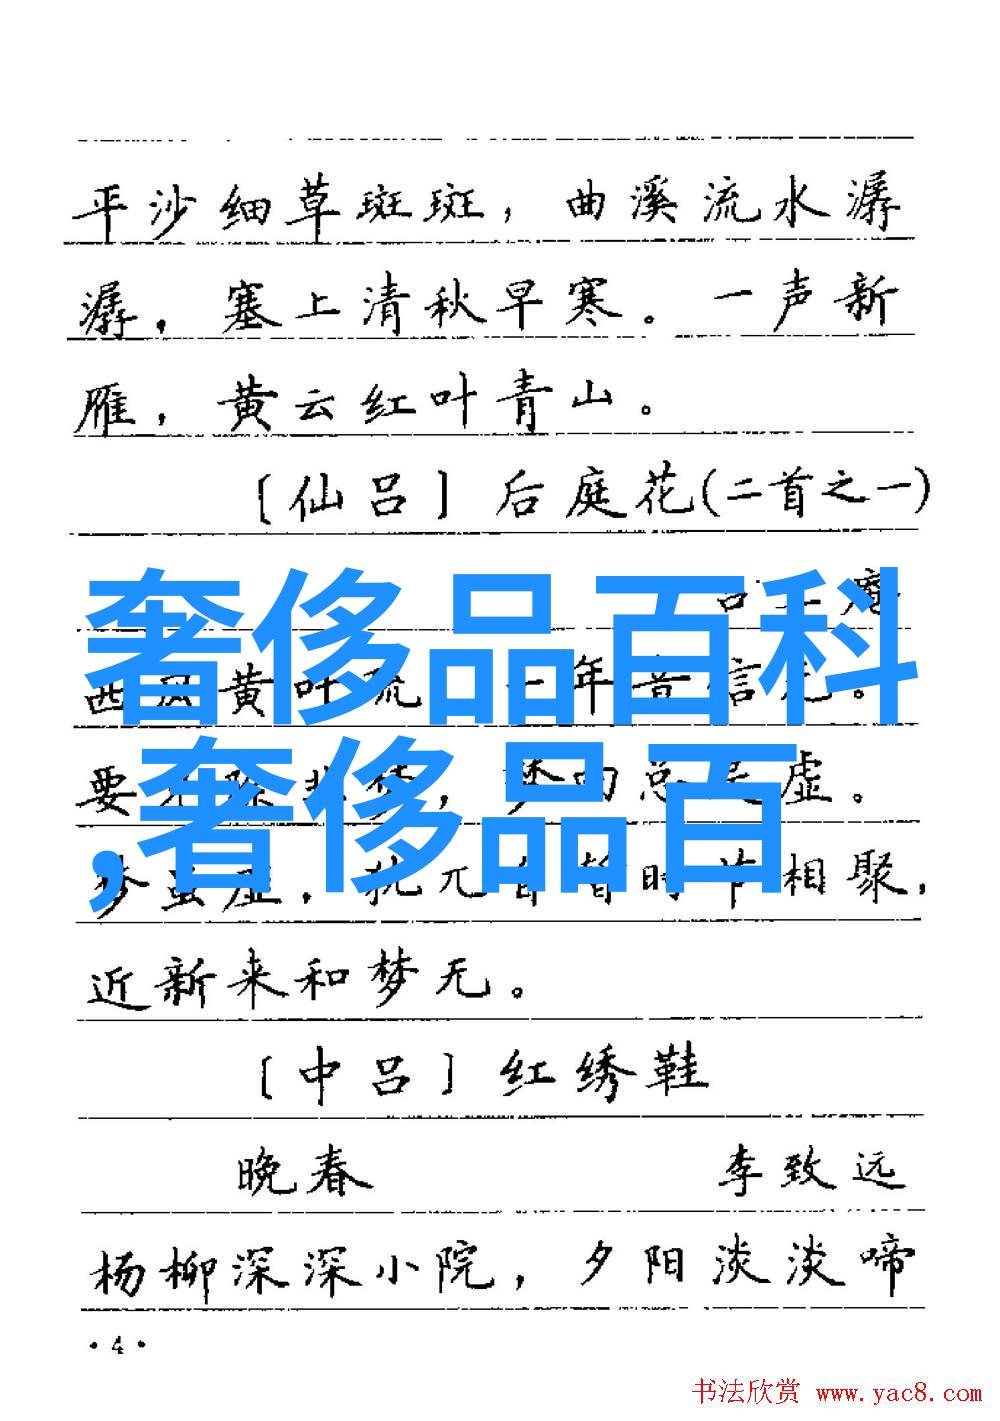 平沙细草斑斑，曲溪流水潺
潺，塞上清秋早寒。一声新
雁，黄云红叶青山。
［仙吕］后庭花(二首之一)
奢侈品百科
西风黄叶疏，一年音信无。
要 ，梦 总是虚。
,奢侈品百
梦虽虚，犹兀自暂时节相聚，
近新来和梦无。
［中吕］红绣鞋
晚春 李致远
杨柳深深小院，夕阳淡淡啼
·4·
书法欣赏 www.yac8.com